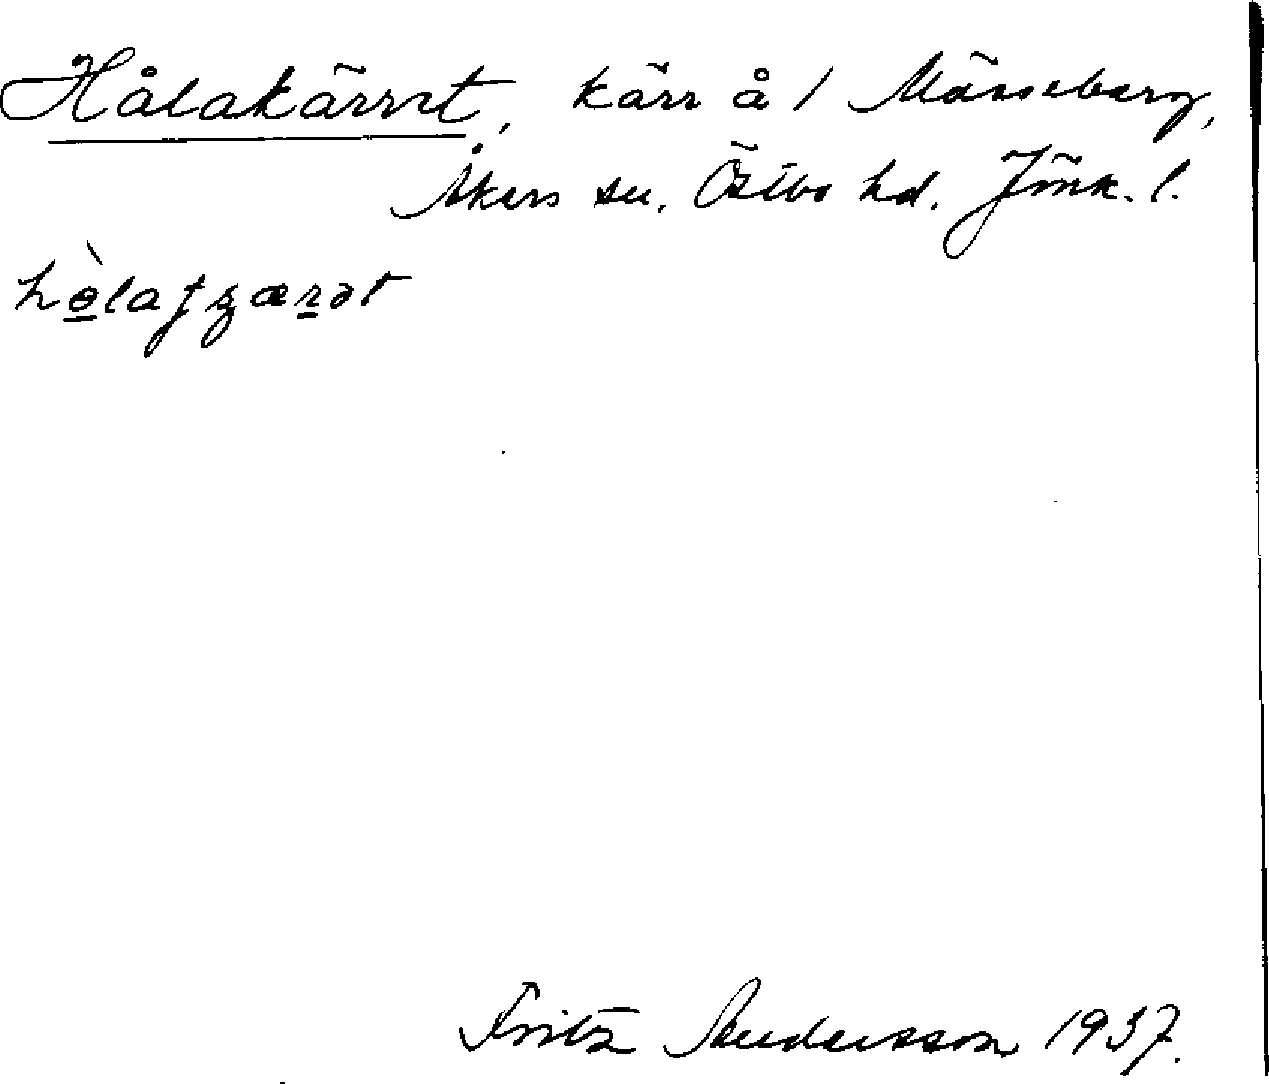 Hålakärret, kärr å 1 Mässeberg,
Åkers sn. Östbo hd. Jönk. l.
Fritz Andersson 1937.